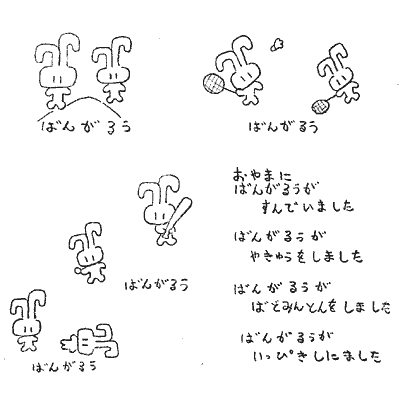 ばんがろう
ばんがろう
ばんがろう
ばんがろう
おやまに
ばんがろうが
すんでいました
ばんがろうが
やきゅうをしました
ばんがろうが
ばとみんとんをしました
ばんがろうが
いっぴきしにました